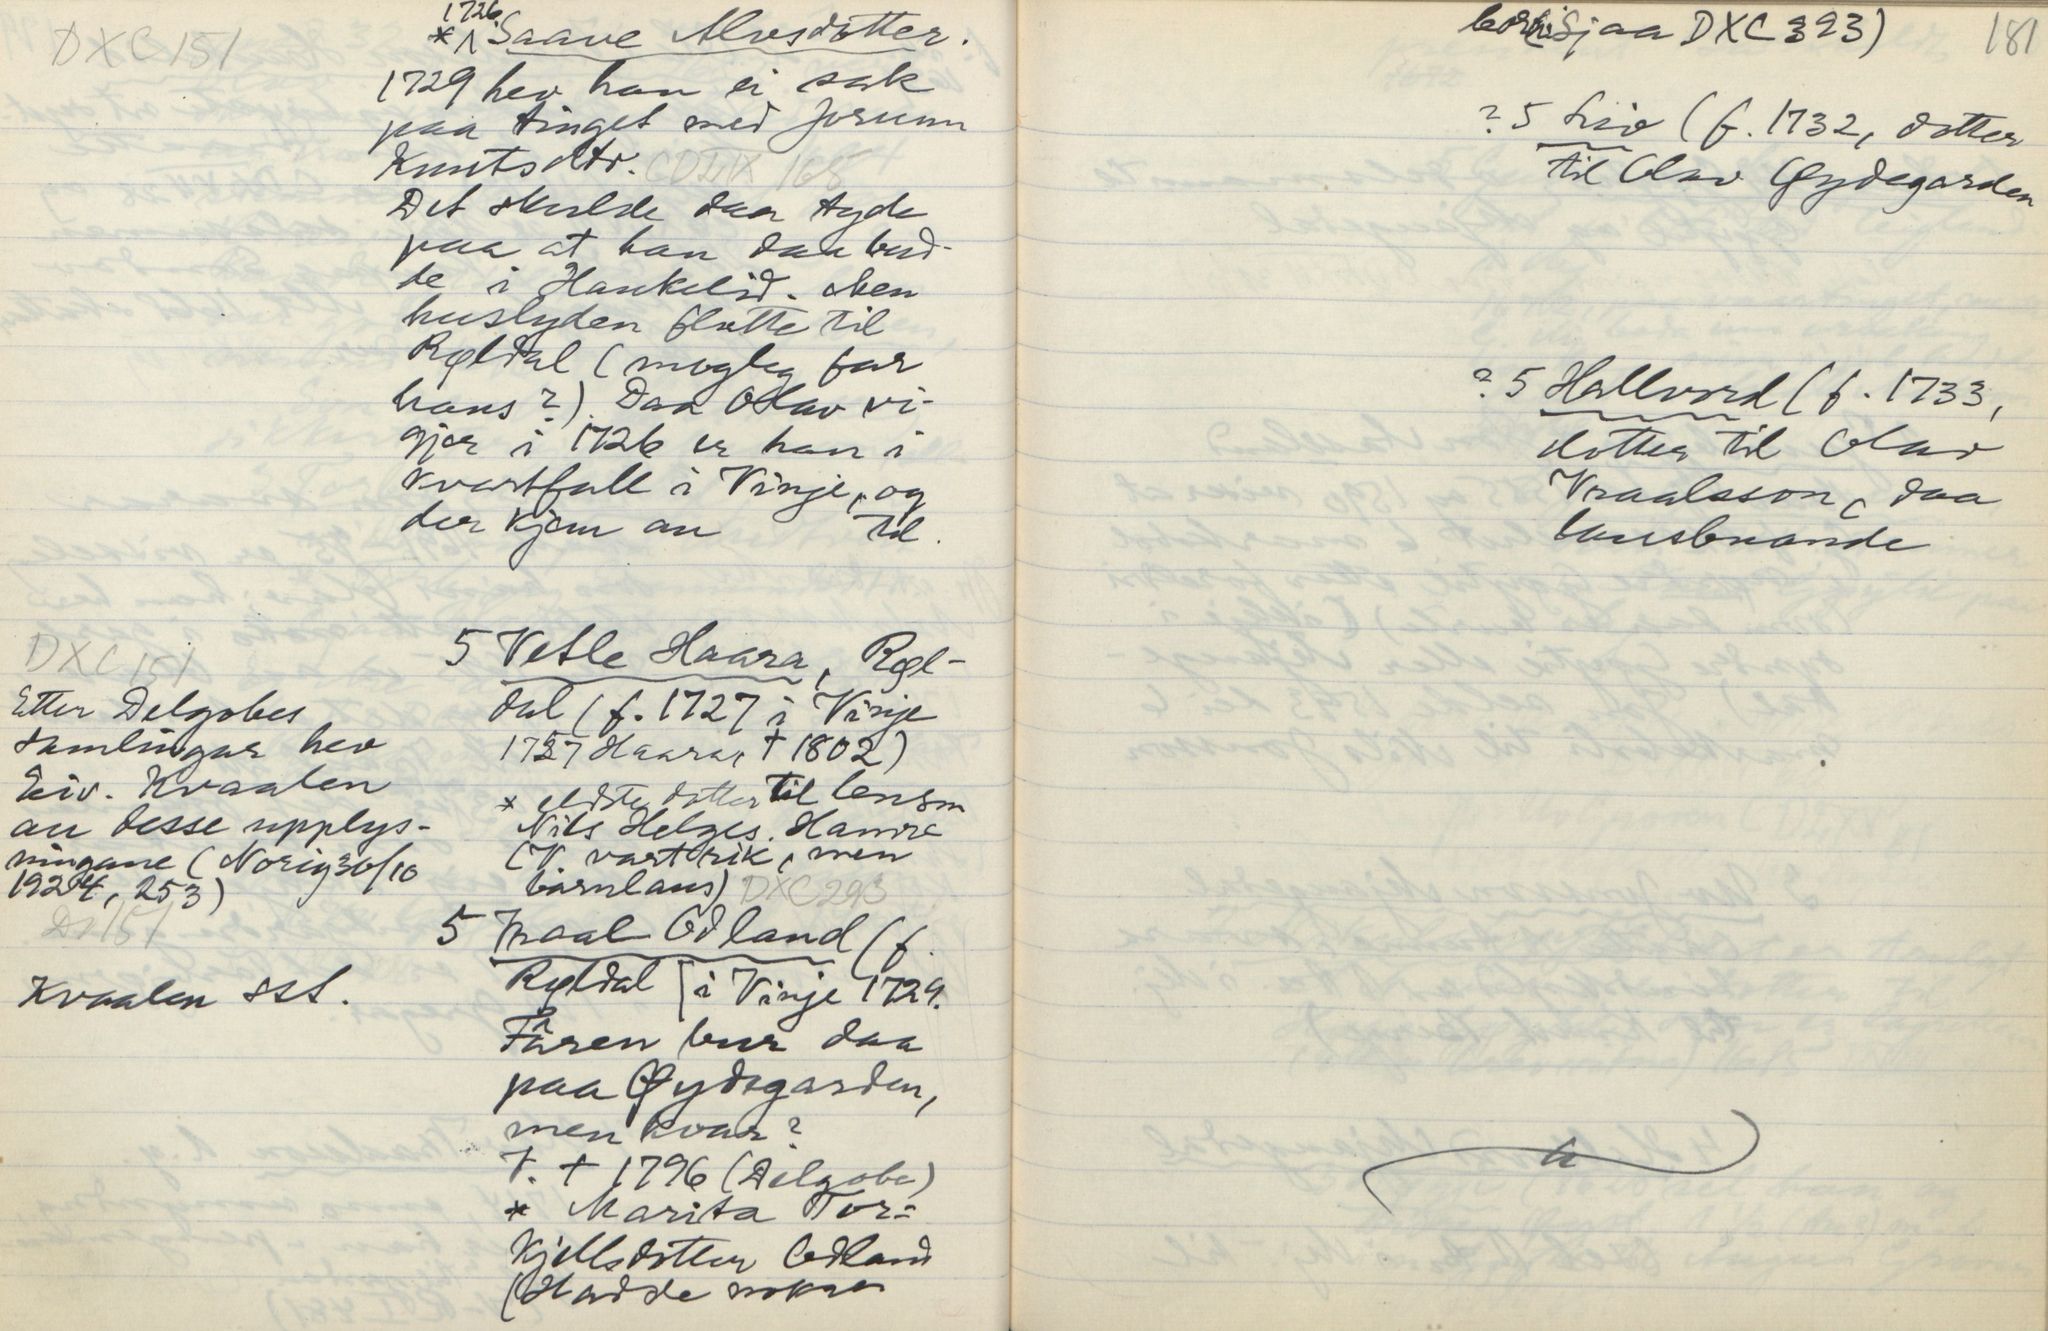 DXC 151
1726
* Saave Alvsdotter.
1729 hev han ei sak
paa tinget med Jorunn
Knutsdtr. CDLIX 165
Det skulde daa tyde
paa at han daa bud-
de i Haukelid. Men
huslyden flutte til
Røldal (mogleg far
hans?). Daa Olav vi-
gjer i 1726 er han i
Kvartfall i Vinje, og
der kjem an til.
5 Vetle Haara, Røl-
dal (f. 1727 i Vinje
1757 Haara, † 1802)
* eldste dotter til lensm
Nils Helges. Hamre
(V. vart rik, men
barnlaus) DXC 293
DXC 151
Etter Delgobes
samlingar hev
Eiv. Kvaalen
an desse upplys-
ningane (Norig 30/10
1924, 253)
5 Vraal Odland (f.
Røldal [i Vinje 1729.
Faren bur daa
paa Øydegarden,
men kvar?
V. † 1796 (Delgobe)
* Marita Tor-
kjellsdotter Odland
(Hadde nokre
Kvaalen sst.
181
born. Sjaa DXC 393)
? 5 Liv (f. 1732, dotter
til Olav Øydegarden
? 5 Hallvord (f. 1733,
dotter til Olav
Vraalsson, daa
lausbuande